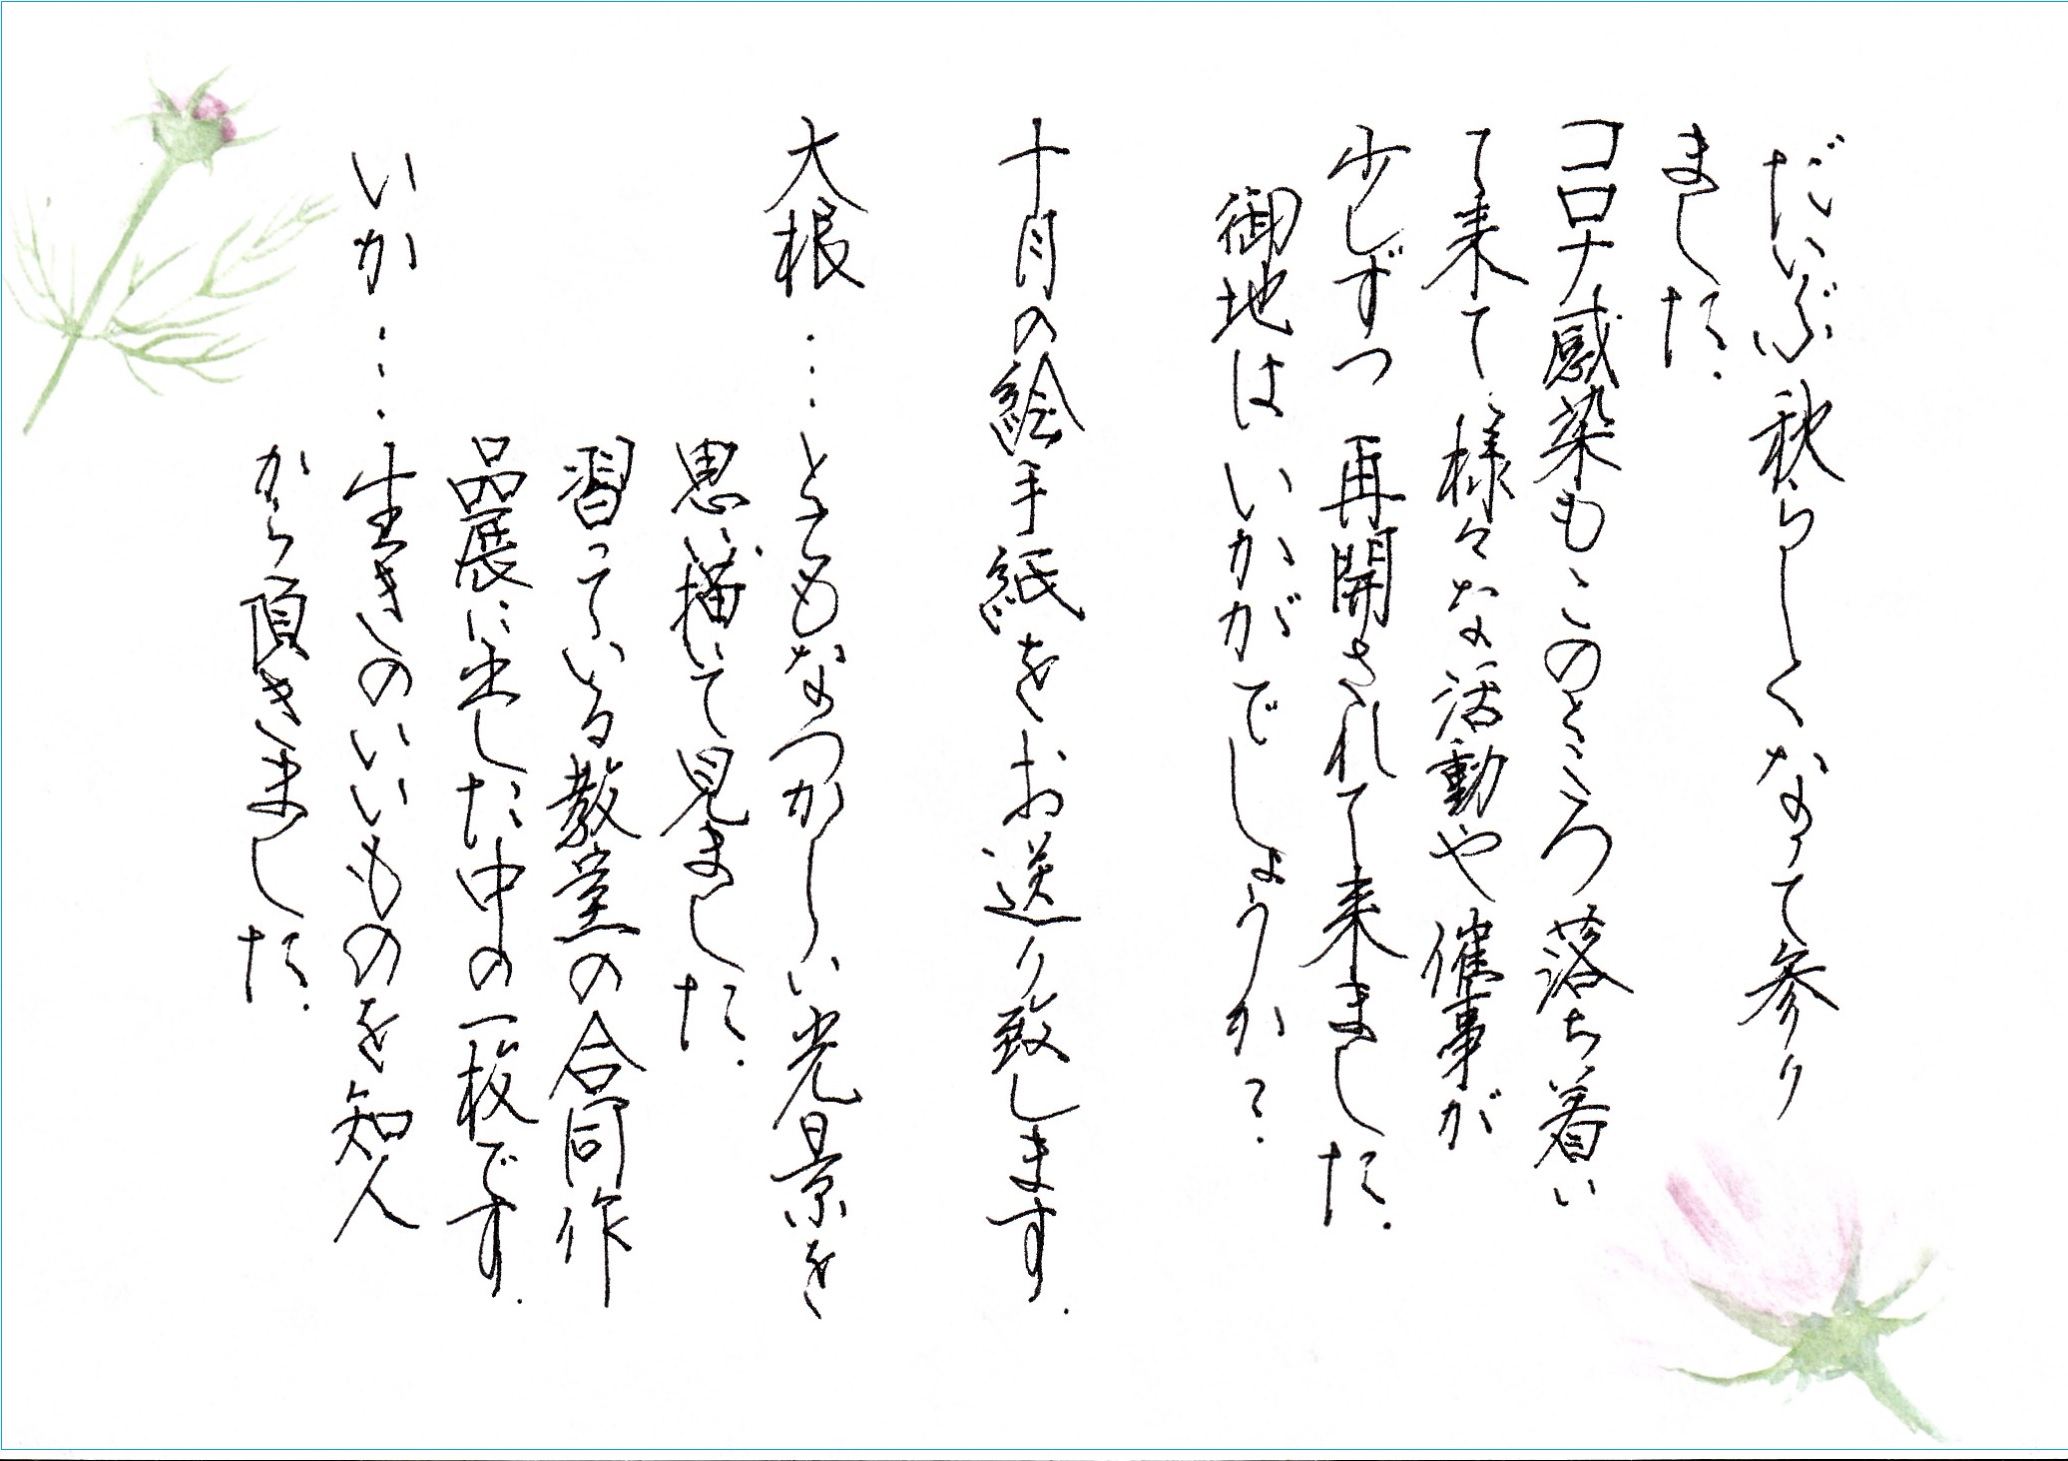 だいぶ秋らしくなって参り
ました.
コロナ感染もこのところ落ち着い
て来て、様々な活動や催事が
少しずつ 再開されて来ました.
御地は いかがでしょうか?
十月の絵手紙をお送り致します.
大根……とてもなつかしい光景を
思い描いて見ました.
習っている教室の合同作
品展に出した中の一枚です.
いか……生きのいいものを知人
から頂きました.